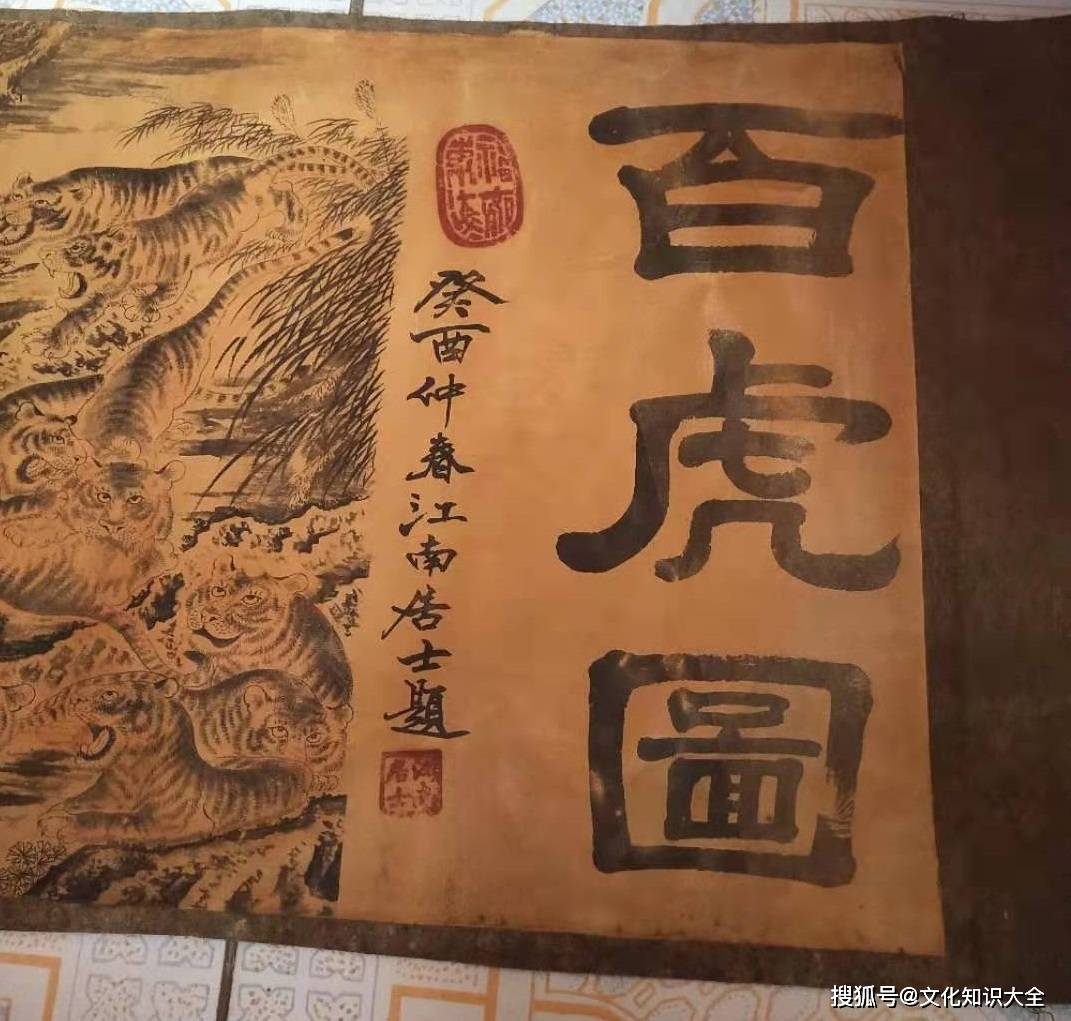 百虎圖
癸酉仲春江南居士題
搜狐号@文化知识大全